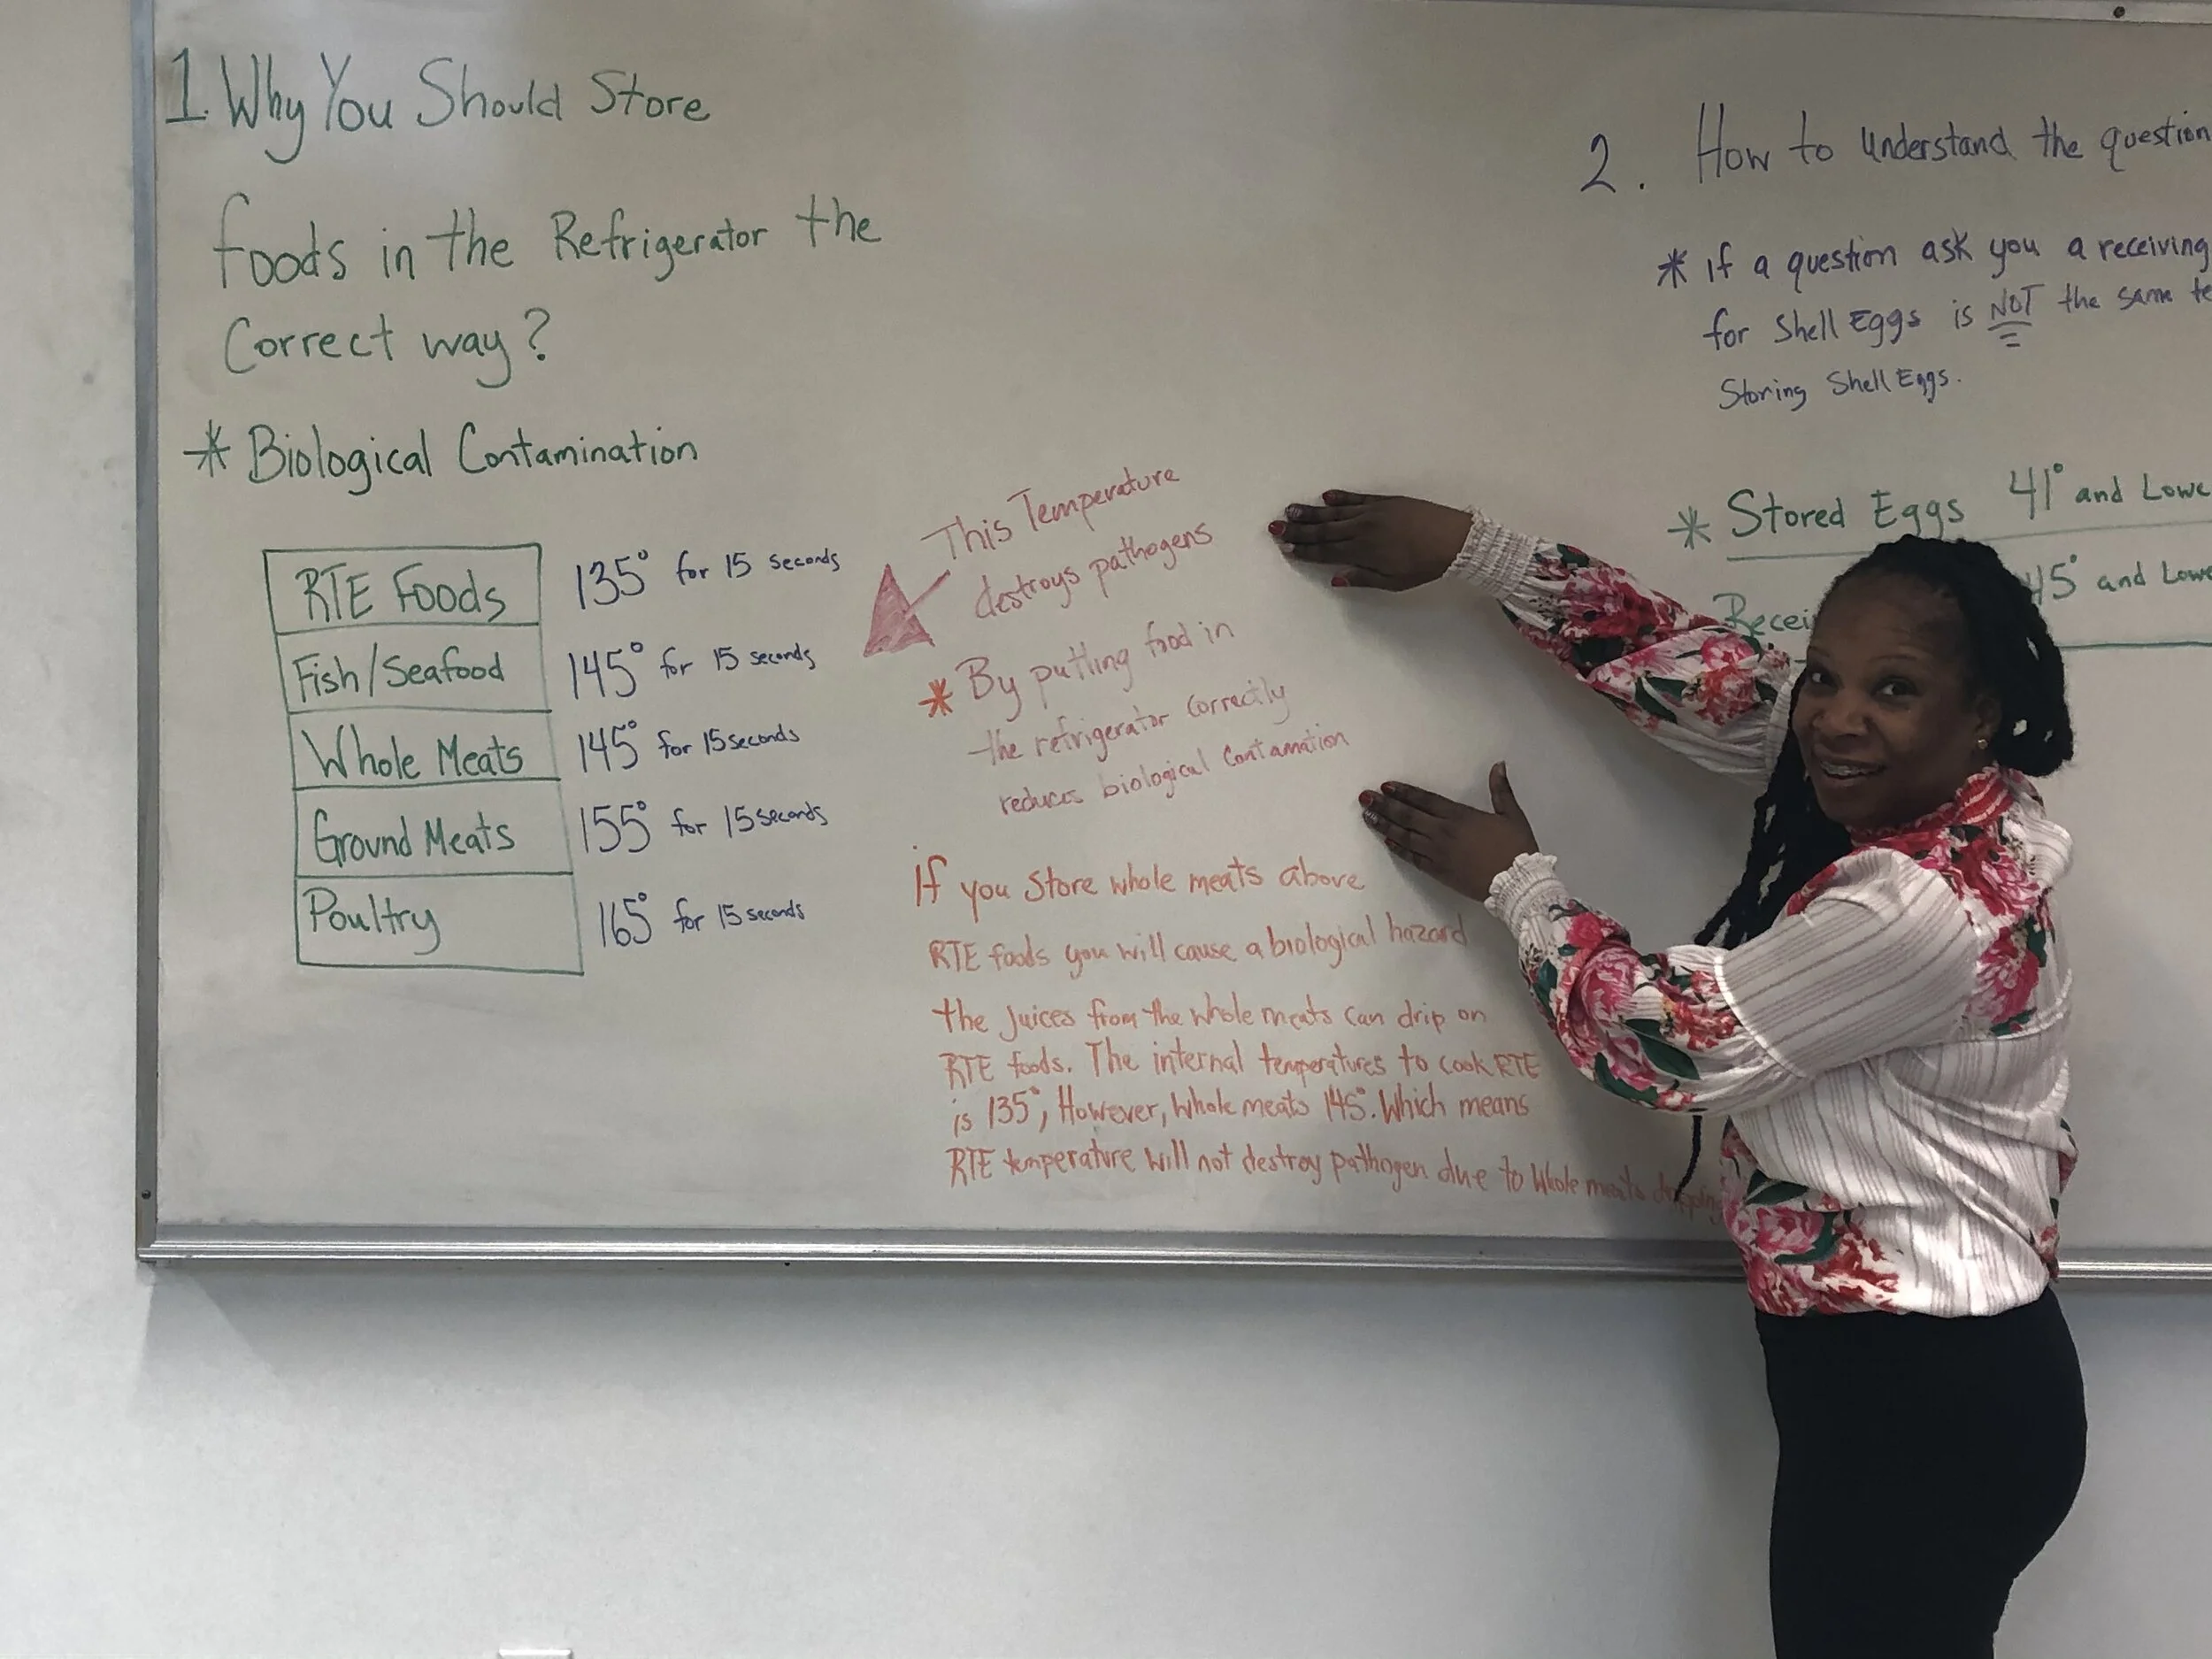 1. Why You Should Store
foods in the Refrigerator the
Correct way?
* Biological Contamination
RTE Foods 135° for 15 seconds
Fish/Seafood 145° for 15 seconds
Whole Meats 145° for 15 seconds
Ground Meats 155° for 15 seconds
Poultry 165° for 15 seconds
This Temperature
destroys pathogens
* By putting food in
the refrigerator correctly
reduces biological Contamation
If you Store whole meats above
RTE foods you will cause a biological hazard
the Juices from the whole meats can drip on
RTE foods. The internal temperatures to cook RTE
is 135°, However, Whole meats 145°. Which means
RTE temperature will not destroy pathogen due to Whole meats dripping
2. How to understand the question
* if a question ask you a receiving
for Shell Eggs is NOT the same te
Storing Shell Eggs.
* Stored Eggs 41° and Lowe
Recei 45° and Lowe